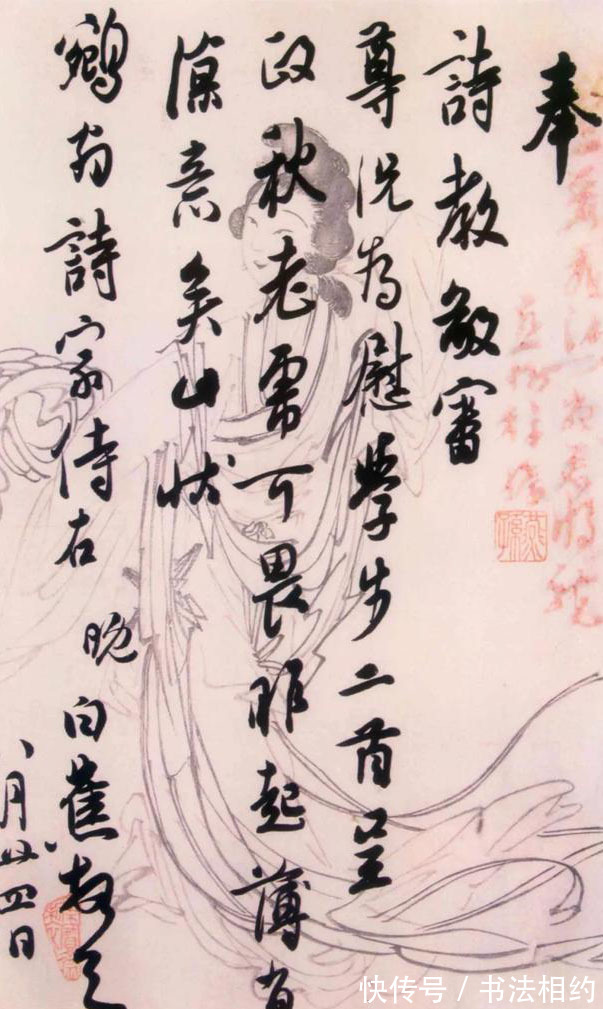 奉
詩教敬審
尊況为慰學步二首呈
政秋老虎可畏昨起薄有
涼意矣
鵷翁詩家侍右
晚白蕉
八月廿四日
快传号 / 书法相约